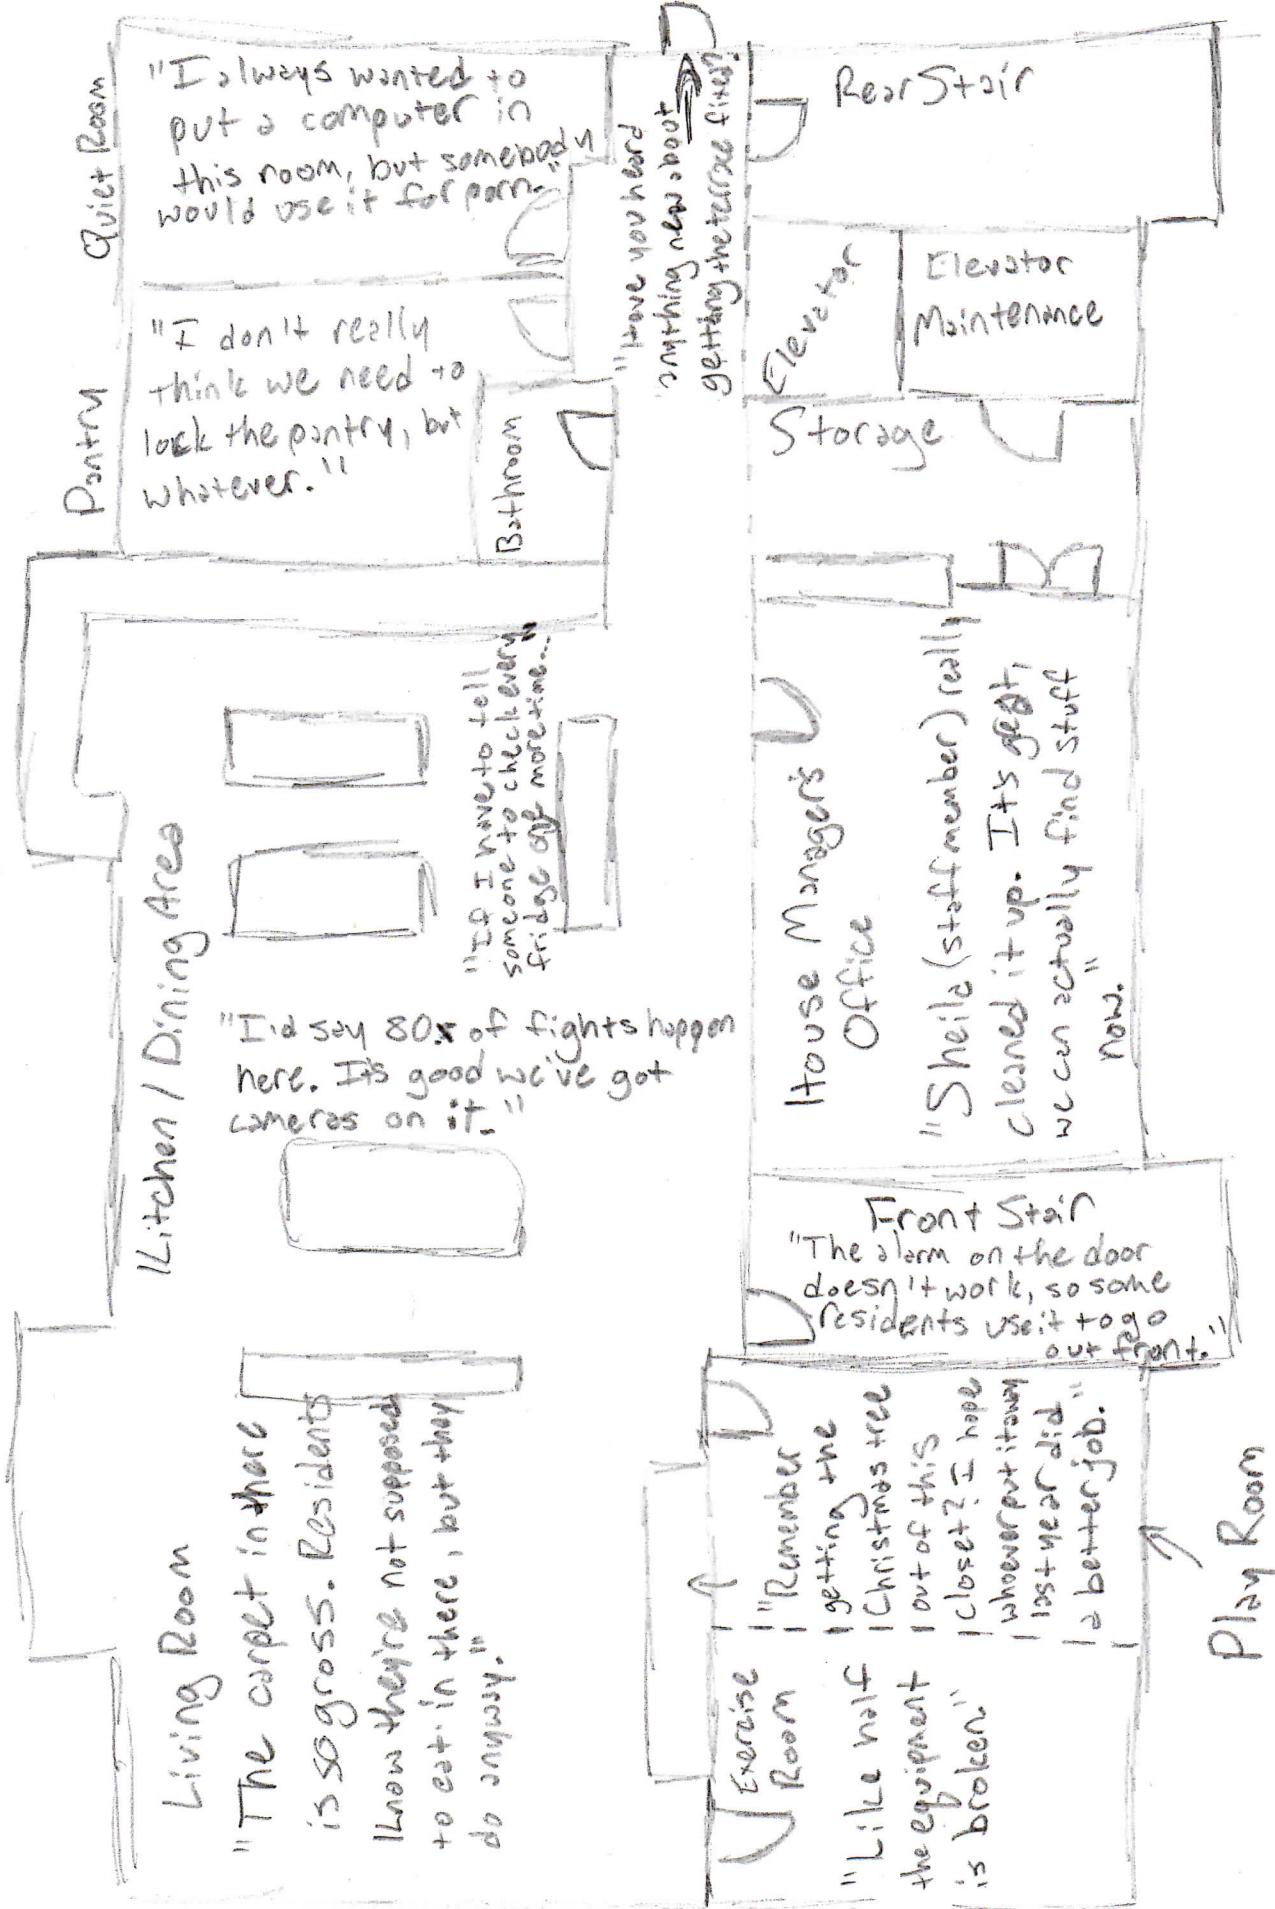 Quiet Room
"I always wanted to
put a computer in
this room, but somebody
would use it for porn."
Pantry
"I don't really
think we need to
lock the pantry, but
whatever."
Bathroom
"Have you heard
anything new about
getting the terrace fixed?"
Rear Stair
Elevator
Elevator
Maintenance
Storage
Kitchen / Dining Area
"If I have to tell
someone to check every
fridge one more time...
"I'd say 80% of fights happen
here. It's good we've got
cameras on it."
House Manager's
Office
"Sheila (staff member) really
cleaned it up. It's great,
we can actually find stuff
now."
Front Stair
"The alarm on the door
doesn't work, so some
residents use it to go
out front."
Living Room
"The carpet in there
is so gross. Residents
know they're not supposed
to eat in there, but they
do anyway."
Exercise
Room
"Like half
the equipment
is broken."
"Remember
getting the
Christmas tree
out of this
closet? I hope
whoever put it away
last year did
a better job."
Play Room